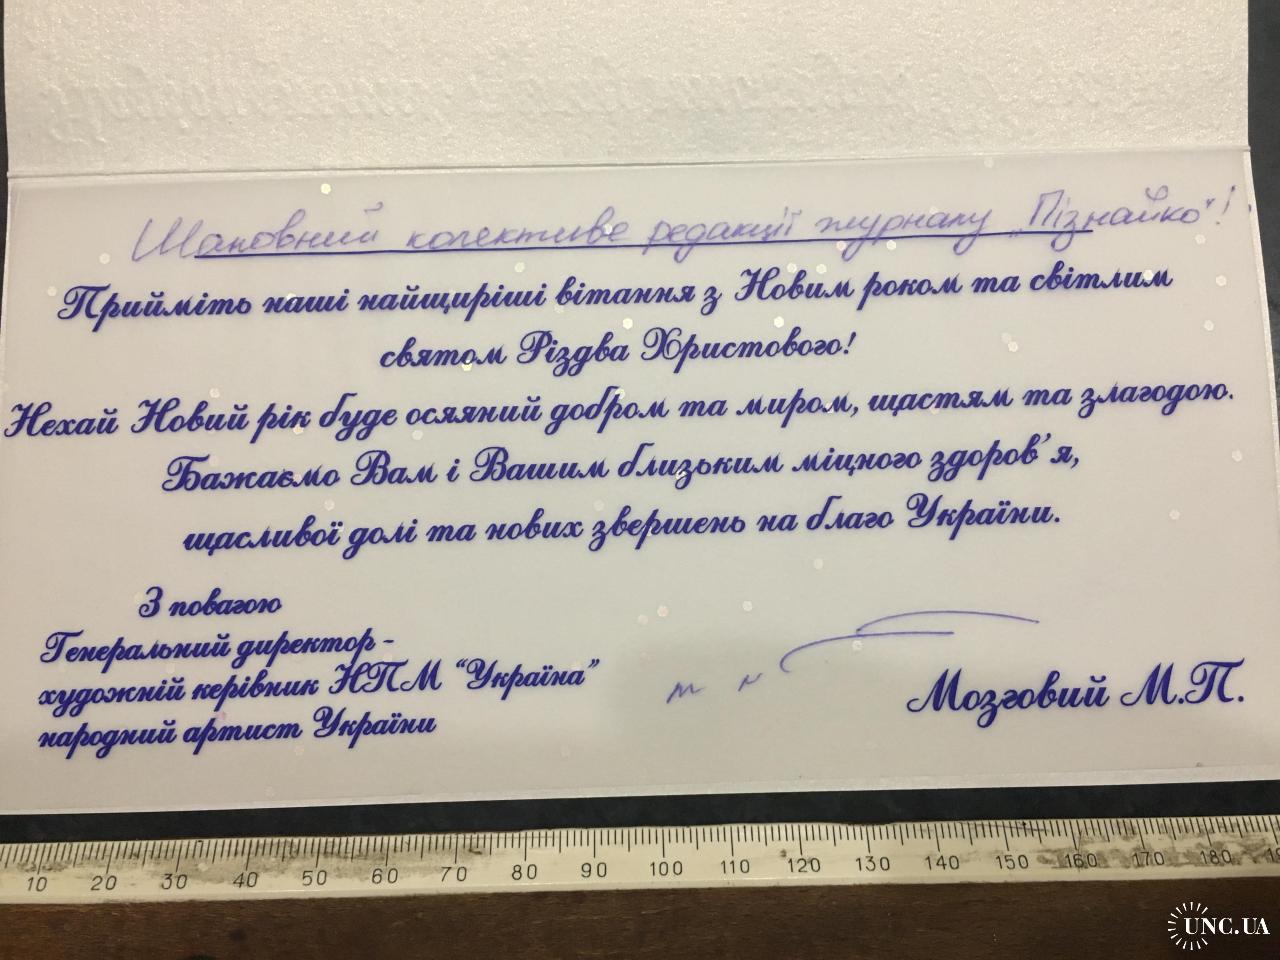 Шановний колективе редакції журналу „Пізнайко"!
Прийміть наші найщиріші вітання з Новим роком та світлим
святом Різдва Христового!
Нехай Новий рік буде осяяний добром та миром, щастям та злагодою.
Бажаємо Вам і Вашим близьким міцного здоров'я,
щасливої долі та нових звершень на благо України.
З повагою
Генеральний директор -
художній керівник НПМ "Україна"
народний артист України
Мозговий М.П.
10 20 30 40 50 60 70 80 90 100 110 120 130 140 150 160 170 180
UNC.UA